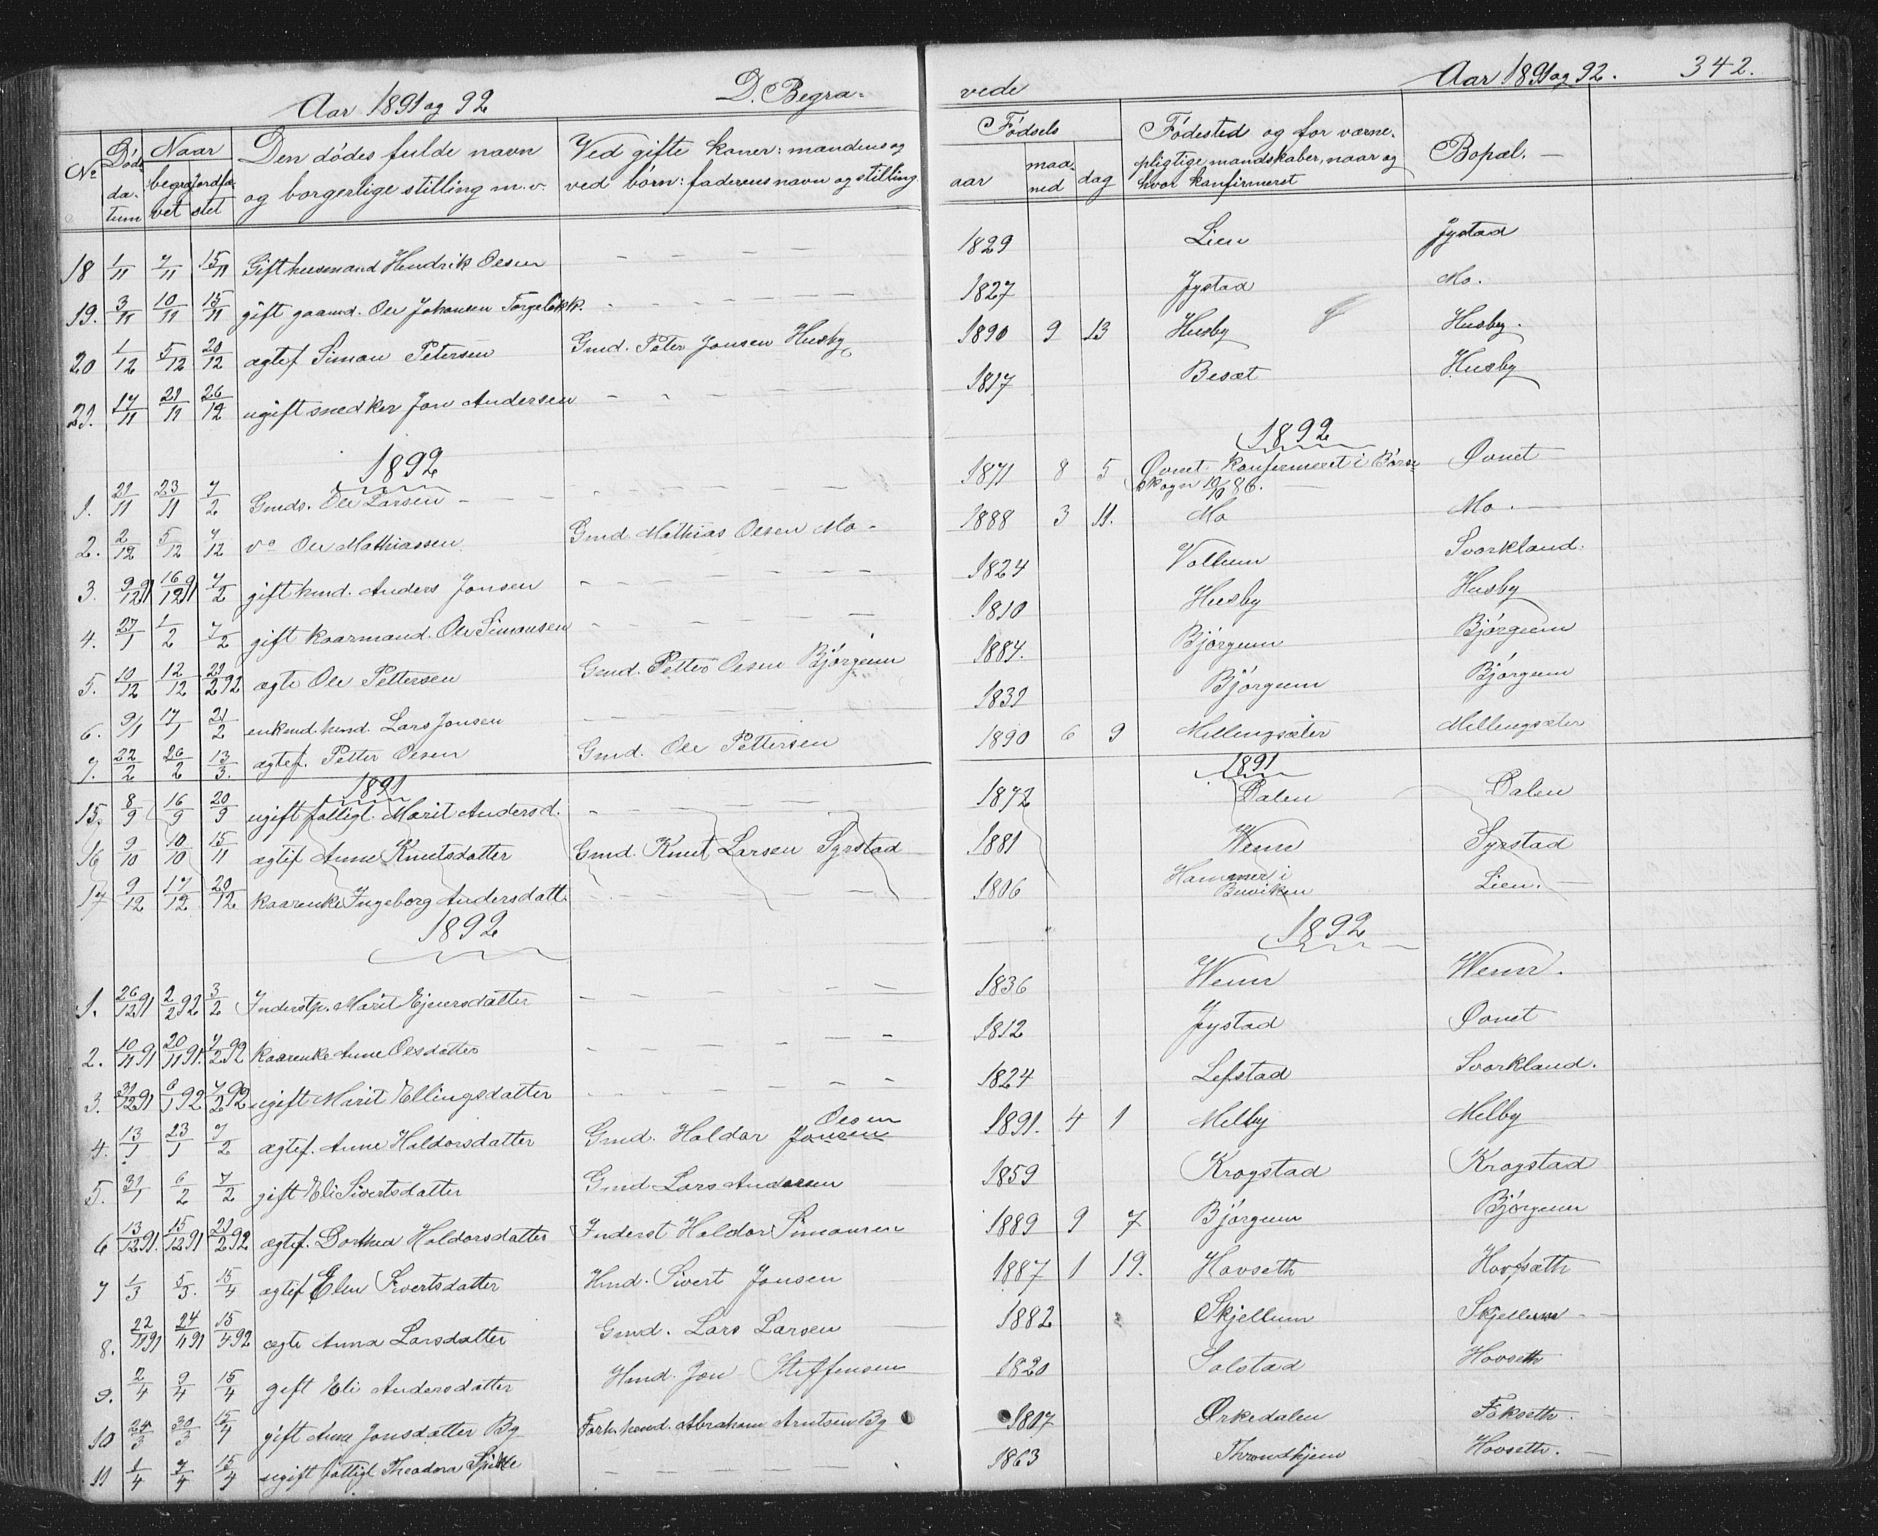 Aar 1891 og 92 D. Begravede Aar 1891 og 92. 342.
No Døds datum Naar begravet jordfæstet Den dødes fulde navn og borgerlige stilling m.v. Ved gifte koner: mandens og ved børn: faderens navn og stilling Fødsels aar maaned dag Fødested og for værnepligtige mandskaber, naar og hvor konfirmeret Bopæl.
18 1/11 7/11 15/11 Gift husmand Hendrik Olsen 1829 Lien Jystad
19. 3/11 10/11 15/11 gift gaamd. Ole Johansen 1827 Jystad Mo.
20 1/12 5/12 20/12 ægtef. Simon Petersen Gmd. Peter Jonsen Husby 1890 9 13 Husby Husby.
21. 17/11 21/11 26/12 ugift snedker Jon Andersen 1817 Besæt Husby
1892 1892
1. 21/11 23/11 7/2 Gmds. Ole Larsen 1871 8 5 Øvnet. konfirmeret i Børseskogn 10/10 86. Øvnet
2. 2/12 5/12 7/12 do Ole Mathiassen Gmd. Mathias Olsen Mo 1888 3 11. Mo Mo.
3. 9/12 91 16/12 91 7/2 gift hmd. Anders Jonsen 1824 Vollum Svorkland.
4. 27/1 1/2 7/2 gift kaarmand. Ole Simonsen 1810 Husby Husby
5. 10/12 12/12 21/2 92 ægte Ole Pettersen Gmd. Petter Olsen Bjørgum 1884. Bjørgum Bjørgum
6. 9/1 17/1 21/2 enkemd. hmd. Lars Jonsen 1831 Bjørgum Bjørgum
7. 22/2 26/2 13/3. ægtef. Petter Olsen Gmd. Ole Pettersen 1890 6 9 Millingsæter Millingsæter
1891 1891
15. 8/9 16/9 20/9 ugift fattigl. Marit Andersd. 1872 Dalen Dalen
16 9/10 10/10 15/11 ægtef. Anne Knutsdatter Gmd. Knut Larsen Syrstad 1881 Wenn Syrstad
17 9/12 17/12 20/12 kaarenke Ingeborg Andersdatt. 1806 Hammer i Buviken Lien.
1892 1892
1. 26/12 91 2/2 92 3/2 Inderstp. Marit Ejnersdatter 1836 Wenn Wenn.
2. 10/11 91 20/11 91. 7/2 92 kaarenke Anne Olsdatter 1812 Jystad Øvnet
3. 31/12 91 6/1 92 7/2 92 ugift Marit Ellingsdatter 1824 Lefstad Svorkland.
4. 13/1 23/1 7/2 ægtef. Anne Haldorsdatter Gmd. Haldor Jonsen Olsen 1891. 4 1 Melby Melby
5. 31/1 6/2 7/2 gift Eli Sivertsdatter Gmd. Lars Andersen 1859 Krogstad Krogstad
6 13/12 91. 15/12 91 21/2 92 ægtef. Dorthea Haldorsdatter Inderst Haldor Simonsen 1889 9 7 Bjørgum Bjørgum
7 1/3 5/3. 15/4 ægtef Elen Sivertsdatter Hmd. Sivert Jonsen 1887 1 19. Hovseth Hovseth
8. 22/11 91 24/11 91 15/4 92 ægte Anna Larsdatter Gmd. Lars Larsen 1882 Skjellum Skjellum
9. 2/4 9/4 15/4 gift Eli Andersdatter Hmd. Jon Steffensen 1820 Solstad Hovseth
10 24/3 30/3 15/4 gift Anne Jonsdatter By Forh. hmd. Abraham Arntsen By 1817 Ørkedalen Fokseth
11 1/4 7/4 15/4 ugift fattigl Theodora 1863 Throndhjem Hovseth.